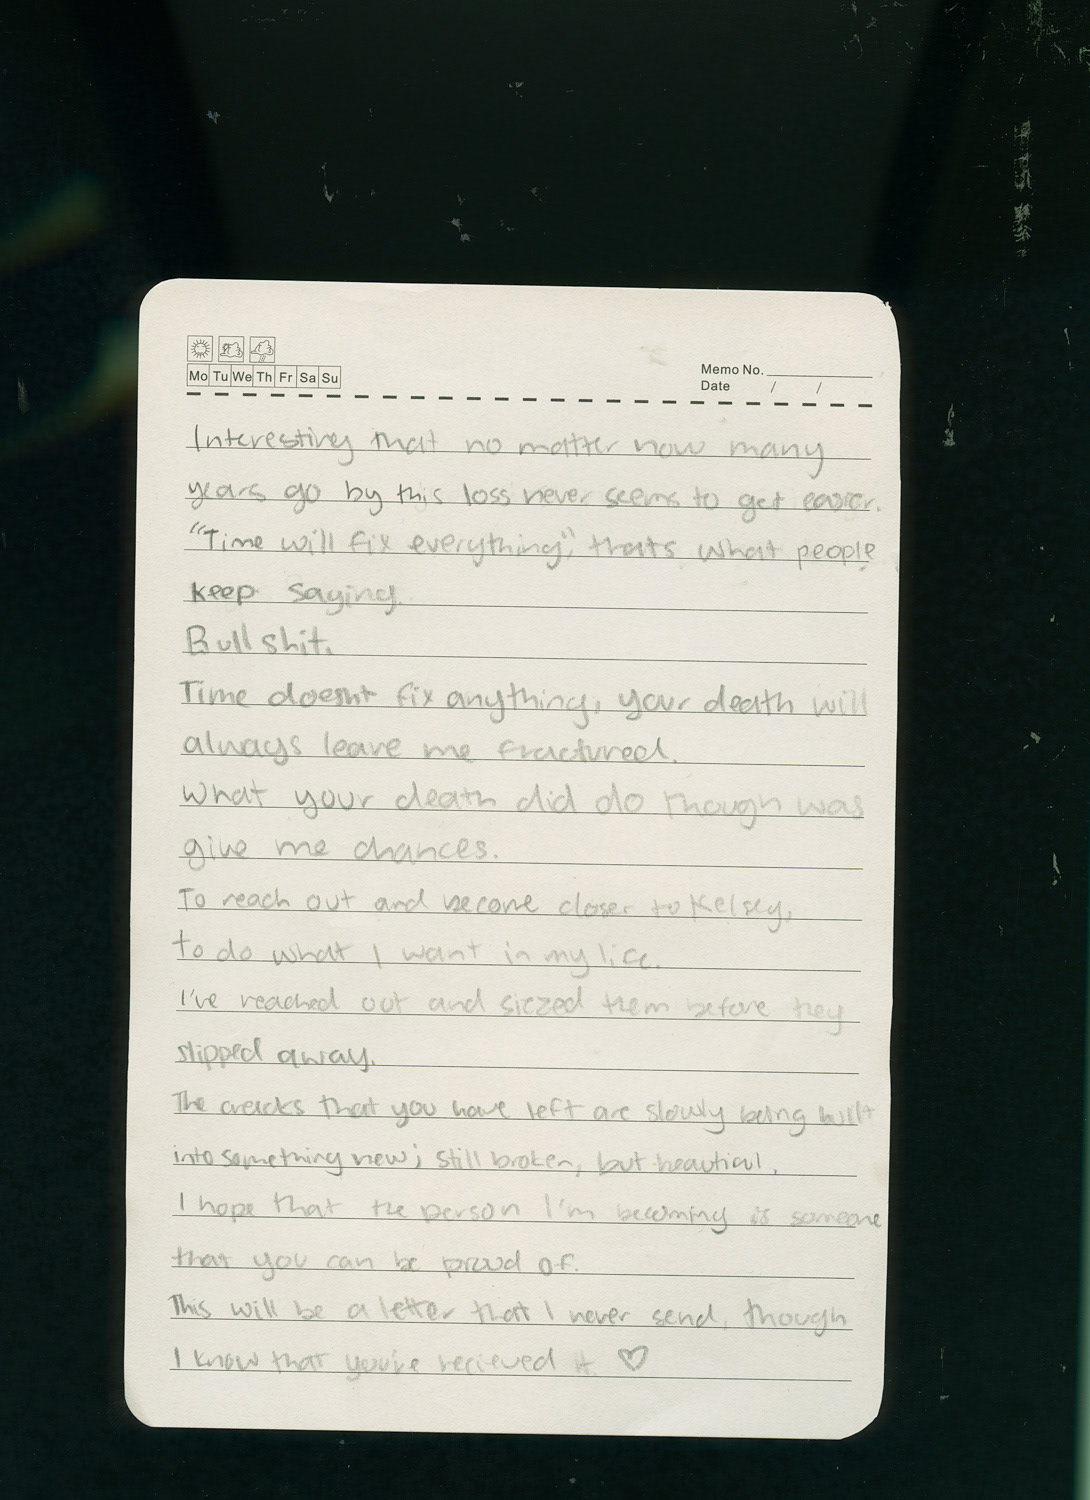 Mo Tu We Th Fr Sa Su
Memo No.
Date / /
Interesting that no matter how many
years go by this loss never seems to get easier.
"Time will fix everything", thats what people
keep saying.
Bullshit.
Time doesnt fix anything, your death will
always leave me fractured.
What your death did do though was
give me chances.
To reach out and become closer to Kelsey,
to do what I want in my life.
I've reached out and siezed them before they
slipped away.
The cracks that you have left are slowly being built
into something new; still broken, but beautiful.
I hope that the person I'm becoming is someone
that you can be proud of.
This will be a letter that I never send, though
I know that you've recieved it ♡